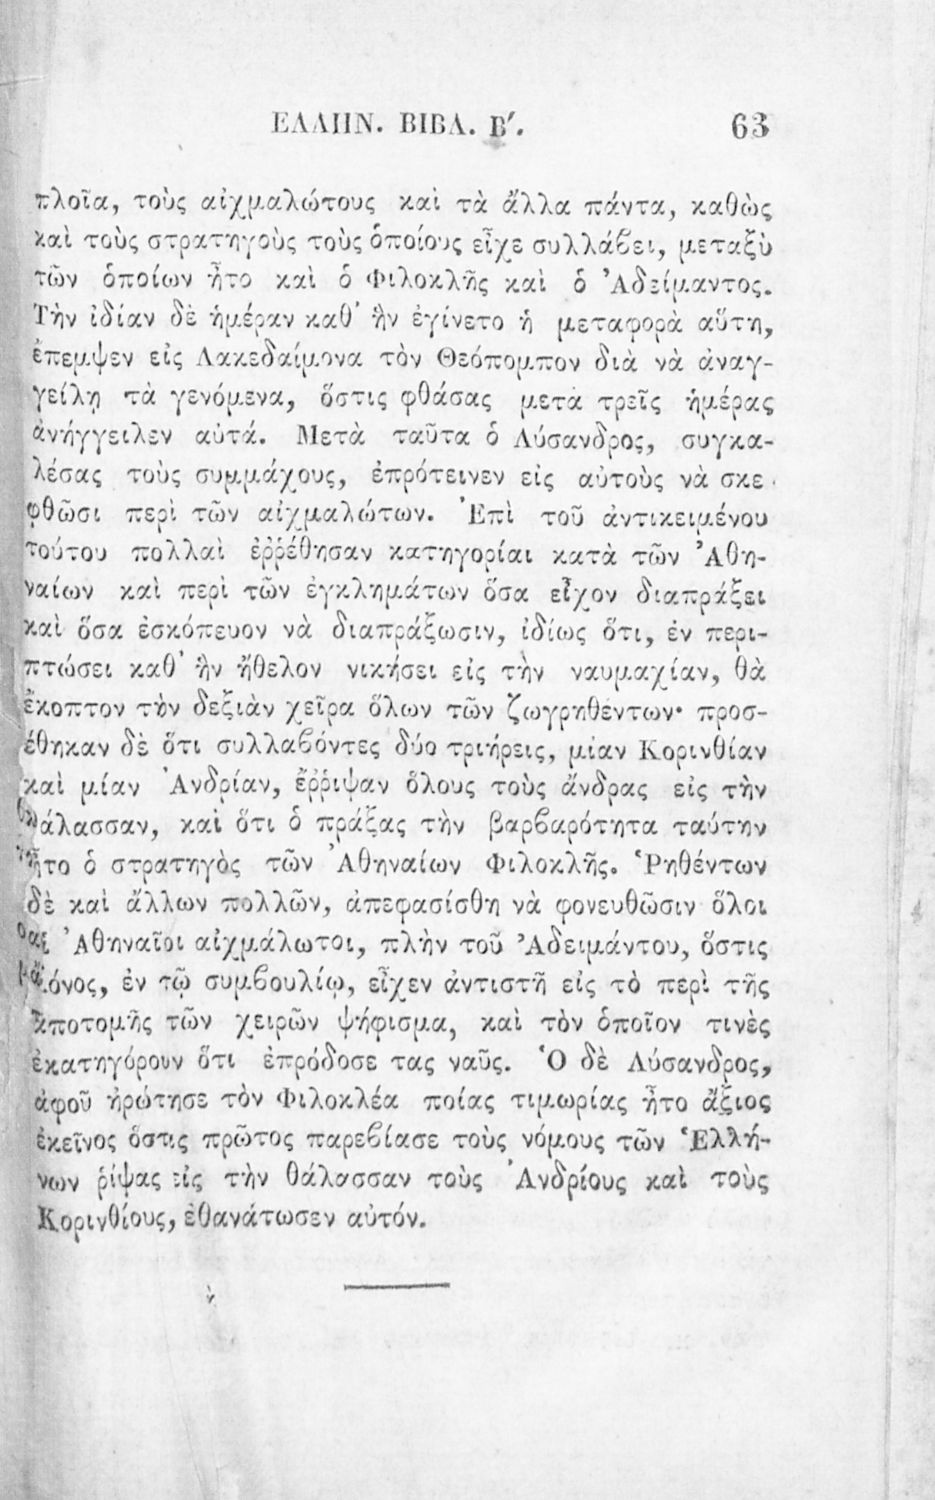 ΕΛΛΗΝ. ΒΙΒΛ. Β΄. 63
πλοῖα, τοὺς αἰχμαλώτους καὶ τὰ ἄλλα πάντα, καθὼς
καὶ τοὺς στρατηγοὺς τοὺς ὁποίους εἶχε συλλάβει, μεταξὺ
τῶν ὁποίων ἦτο καὶ ὁ Φιλοκλῆς καὶ ὁ Ἀδείμαντος.
Τὴν ἰδίαν δὲ ἡμέραν καθ' ἣν ἐγίνετο ἡ μεταφορὰ αὕτη,
ἔπεμψεν εἰς Λακεδαίμονα τὸν Θεόπομπον διὰ νὰ ἀναγ-
γείλῃ τὰ γενόμενα, ὅστις φθάσας μετὰ τρεῖς ἡμέρας
ἀνήγγειλεν αὐτά. Μετὰ ταῦτα ὁ Λύσανδρος, συγκα-
λέσας τοὺς συμμάχους, ἐπρότεινεν εἰς αὐτοὺς νὰ σκε-
φθῶσι περὶ τῶν αἰχμαλώτων. Ἐπὶ τοῦ ἀντικειμένου
τούτου πολλαὶ ἐῤῥέθησαν κατηγορίαι κατὰ τῶν Ἀθη-
ναίων καὶ περὶ τῶν ἐγκλημάτων ὅσα εἶχον διαπράξει
καὶ ὅσα ἐσκόπευον νὰ διαπράξωσιν, ἰδίως ὅτι, ἐν περι-
πτώσει καθ' ἣν ἤθελον νικήσει εἰς τὴν ναυμαχίαν, θὰ
ἔκοπτον τὴν δεξιὰν χεῖρα ὅλων τῶν ζωγρηθέντων· προσ-
έθηκαν δὲ ὅτι συλλαβόντες δύο τριήρεις, μίαν Κορινθίαν
καὶ μίαν Ἀνδρίαν, ἔῤῥιψαν ὅλους τοὺς ἄνδρας εἰς τὴν
θάλασσαν, καὶ ὅτι ὁ πράξας τὴν βαρβαρότητα ταύτην
ἦτο ὁ στρατηγὸς τῶν Ἀθηναίων Φιλοκλῆς. Ῥηθέντων
δὲ καὶ ἄλλων πολλῶν, ἀπεφασίσθη νὰ φονευθῶσιν ὅλοι
οἱ Ἀθηναῖοι αἰχμάλωτοι, πλὴν τοῦ Ἀδειμάντου, ὅστις
μόνος, ἐν τῷ συμβουλίῳ, εἶχεν ἀντιστῆ εἰς τὸ περὶ τῆς
ἀποτομῆς τῶν χειρῶν ψήφισμα, καὶ τὸν ὁποῖον τινὲς
ἐκατηγόρουν ὅτι ἐπρόδοσε τας ναῦς. Ὁ δὲ Λύσανδρος,
ἀφοῦ ἠρώτησε τὸν Φιλοκλέα ποίας τιμωρίας ἦτο ἄξιος
ἐκεῖνος ὅστις πρῶτος παρεβίασε τοὺς νόμους τῶν Ἑλλή-
νων ῥίψας εἰς τὴν θάλασσαν τοὺς Ἀνδρίους καὶ τοὺς
Κορινθίους, ἐθανάτωσεν αὐτόν.